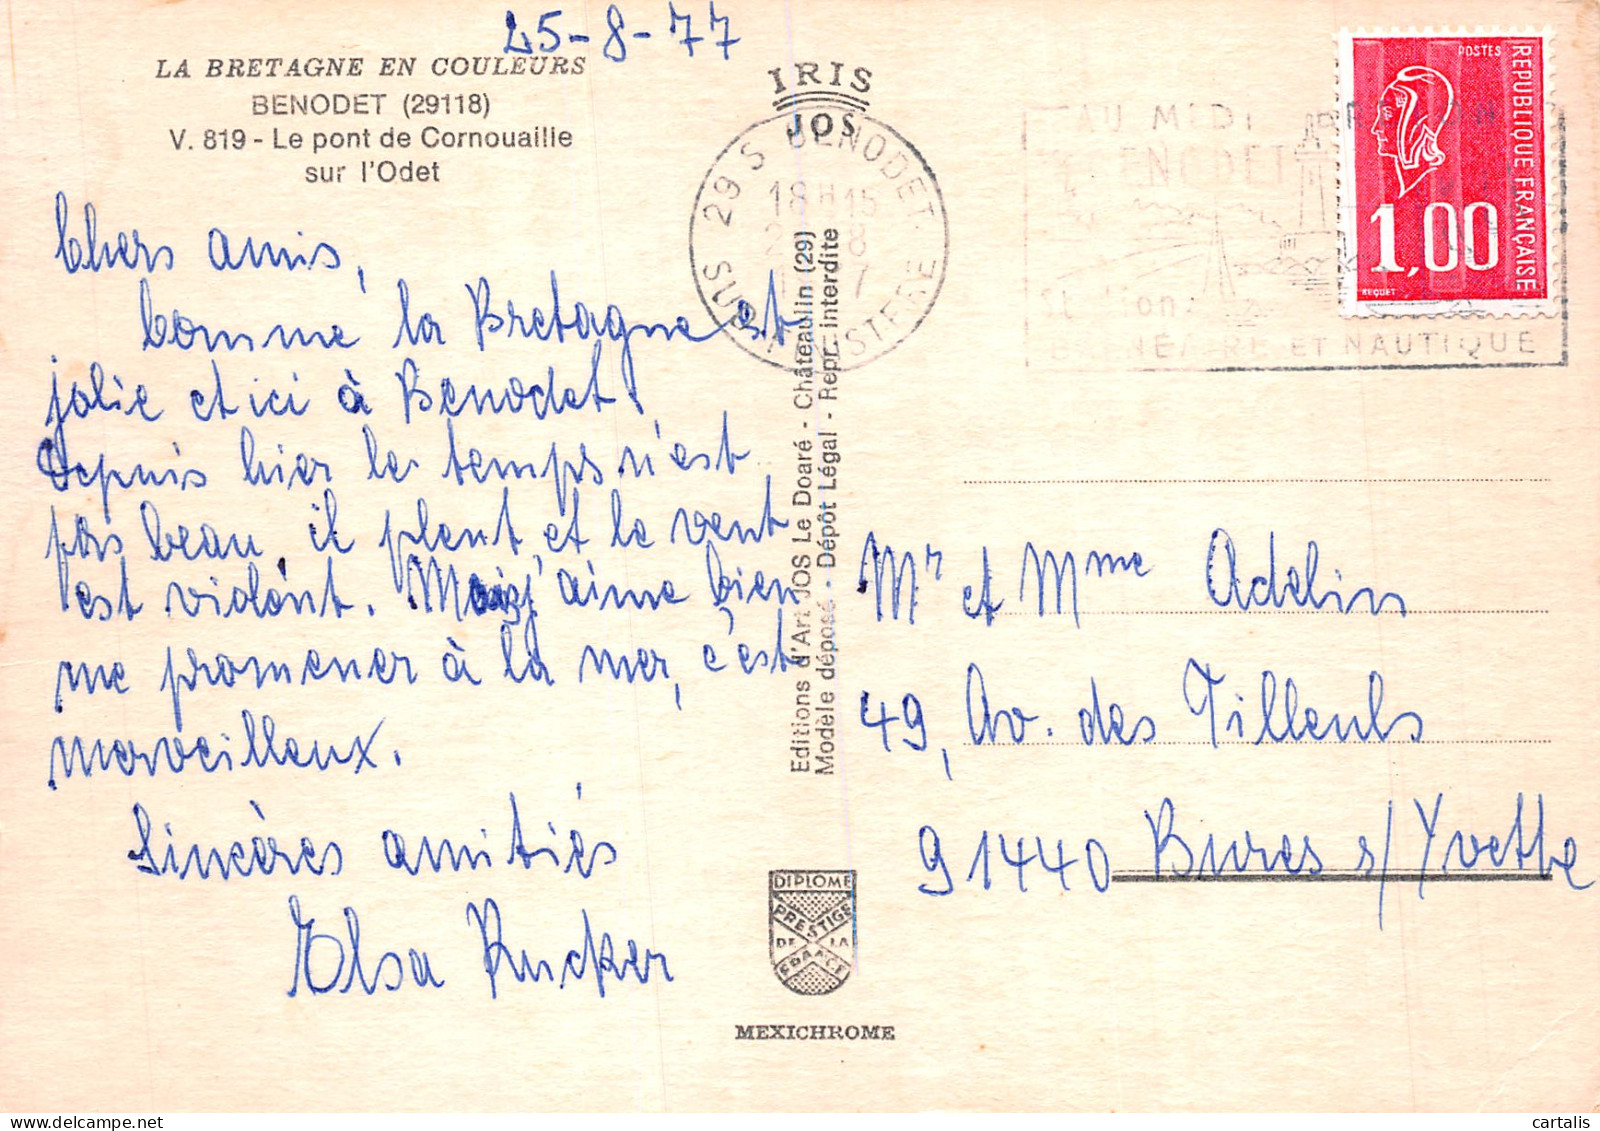 25-8-77
LA BRETAGNE EN COULEURS
BENODET (29118)
V. 819 - Le pont de Cornouaille
sur l'Odet
Chers amis,
Comme la Bretagne est
jolie et ici à Benodet!
Depuis hier le temps n'est
pas beau, il pleut et le vent
est violent. Mais j'aime bien
me promener à la mer, c'est
merveilleux.
Sincères amitiés
Elsa Rucker
IRIS
JOS
29 S BENODET
18H15
8
SUD FINISTERE
Editions d'Art JOS Le Doaré - Châteaulin (29)
Modèle déposé - Dépôt Légal - Repr. interdite
DIPLOME
PRESTIGE
DE LA
FRANCE
MEXICHROME
AU MIDI
BENODET
Station
BALNÉAIRE ET NAUTIQUE
POSTES
REPUBLIQUE FRANÇAISE
1,00
BEQUET
Mr et Mme Adelin
49, Av. des Tilleuls
91440 Bures s/Yvette
cartalis
delcampe.net